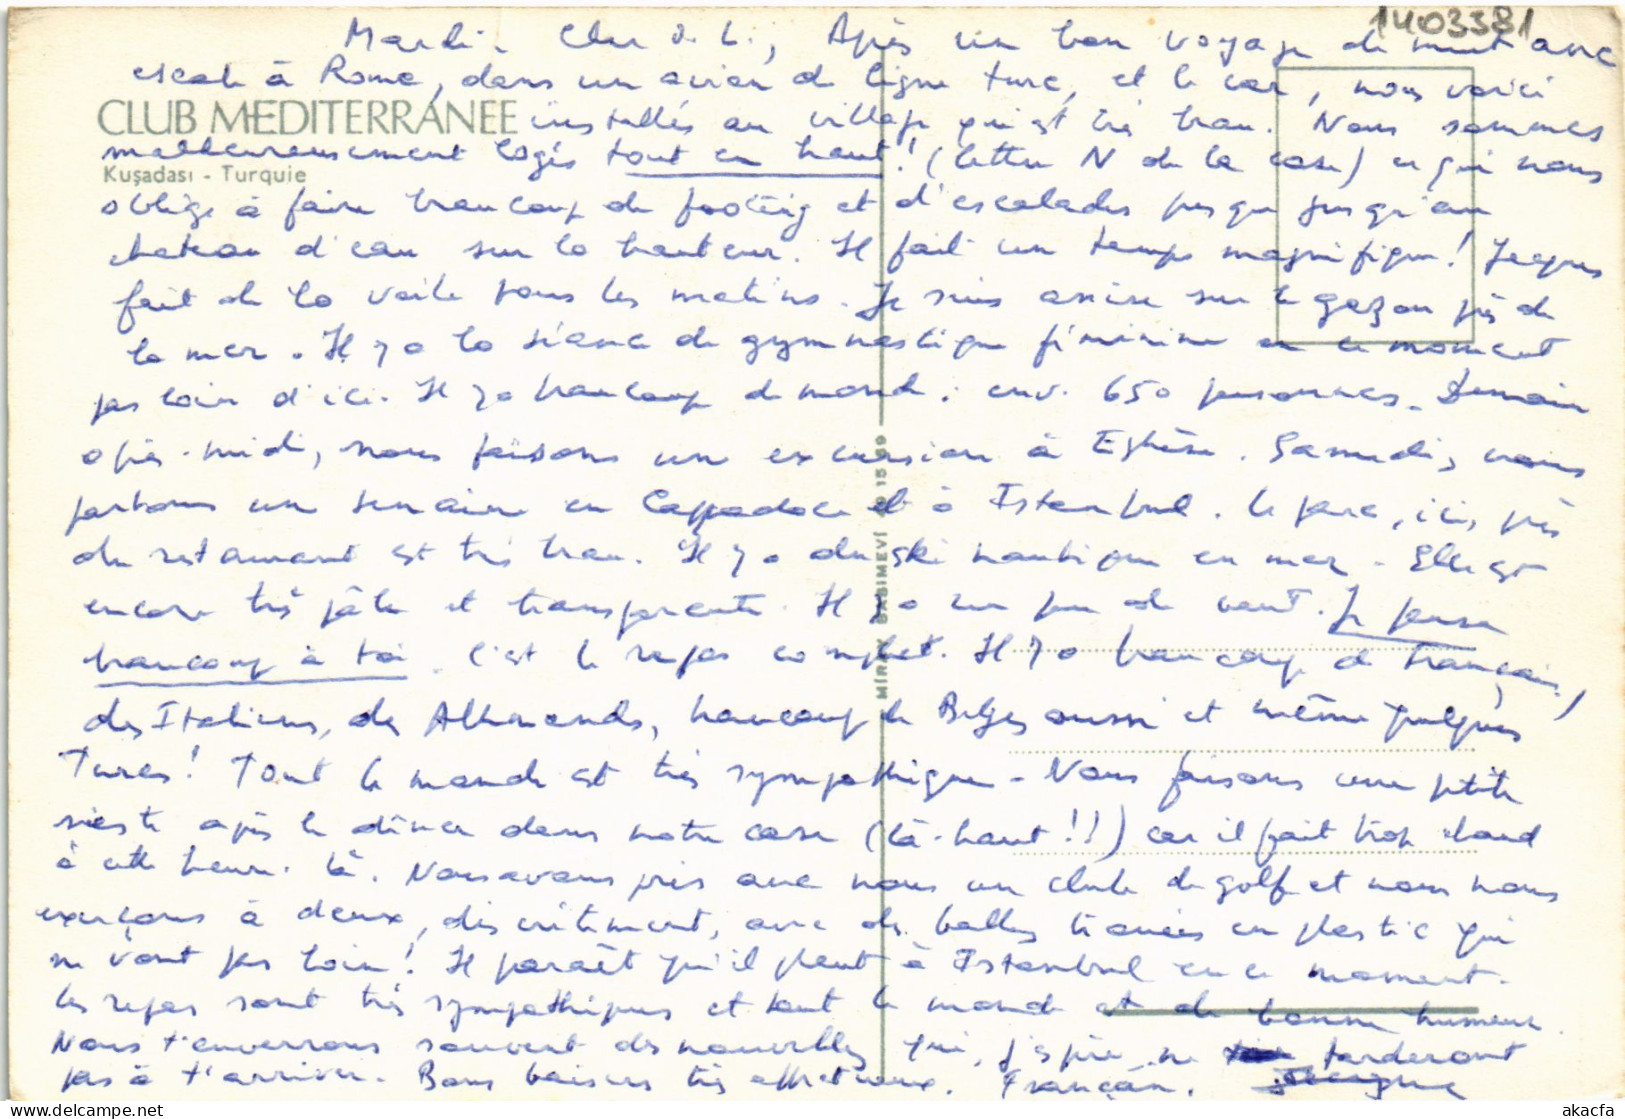 1403381
Mardi - Après un bon voyage de nuit avec
escale à Rome, dans un avion de ligne turc, et le car, nous voici
CLUB MEDITERRANEE
installés au village qui est très beau. Nous sommes
malheureusement logés tout en haut! (lettre N de la case) ce qui nous
Kuşadası - Turquie
oblige à faire beaucoup de footing et d'escalades jusqu'au
chateau d'eau sur la hauteur. Il fait un temps magnifique! Jacques
fait de la voile tous les matins. Je suis assise sur le gazon près de
la mer. Il y a la séance de gymnastique féminine en ce moment
pas loin d'ici. Il y a beaucoup de monde : env. 650 personnes. Demain
après-midi, nous faisons une excursion à Ephèse. Samedi, nous
partons une semaine en Cappadoce et à Istanbul. Le parc, ici, près
du restaurant est très beau. Il y a du ski nautique en mer. Elle est
encore très jolie et transparente. Il y a un peu de vent. Je pense
beaucoup à toi. C'est le repos complet. Il y a beaucoup de français,
des Italiens, des Allemands, beaucoup de Belges aussi et même quelques
Turcs! Tout le monde est très sympathique - Nous faisons une petite
sieste après le dîner dans notre case (là-haut!!) car il fait trop chaud
à cette heure-là. Nous avons pris avec nous un club de golf et nous nous
exerçons à deux, discrètement, avec des balles trouées en plastic qui
ne vont pas loin! Il paraît qu'il pleut à Istanbul en ce moment.
Les repas sont très sympathiques et tout le monde est de bonne humeur.
Nous t'enverrons souvent des nouvelles qui, j'espère, ne tarderont
pas à t'arriver. Bons baisers très affectueux.
MİRAY BASIMEVİ
akacfa